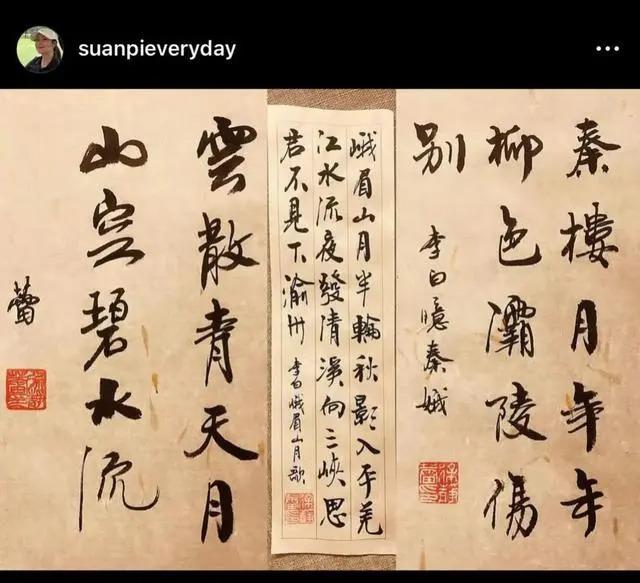 suanpieveryday
秦樓月年年
柳色灞陵傷
別
李白憶秦娥
峨眉山月半輪秋影入平羌
江水流夜發清溪向三峽思
君不見下渝州
李白峨眉山月歌
雲散青天月
山空碧水流
蕾